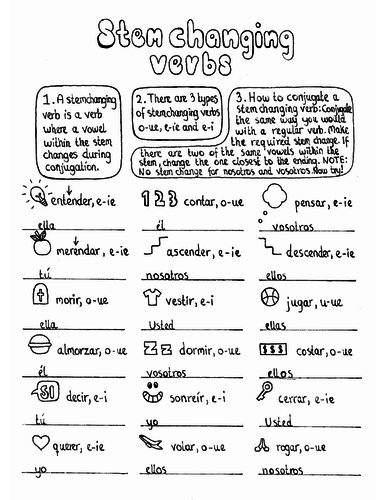 Stem changing
verbs
1. A stemchanging
verb is a verb
where a vowel
within the stem
changes during
conjugation.
2. There are 3 types
of stemchanging verbs
o-ue, e-ie and e-i
3. How to conjugate a
stem changing verb: Conjugate
the same way you would
with a regular verb. Make
the required stem change. If
there are two of the same vowels within the
stem, change the one closest to the ending. NOTE:
No stem change for nosotros and vosotros. Now try!
entender, e-ie
1 2 3 contar, o-ue
pensar, e-ie
ella
él
vosotros
merendar, e-ie
ascender, e-ie
descender, e-ie
tú
nosotros
ellos
morir, o-ue
vestir, e-i
jugar, u-ue
ella
Usted
ellas
almorzar, o-ue
Z Z dormir, o-ue
$$$ costar, o-ue
él
vosotros
ellos
SI decir, e-i
sonreír, e-i
cerrar, e-ie
tú
yo
Usted
querer, e-ie
volar, o-ue
rogar, o-ue
yo
ellos
nosotros